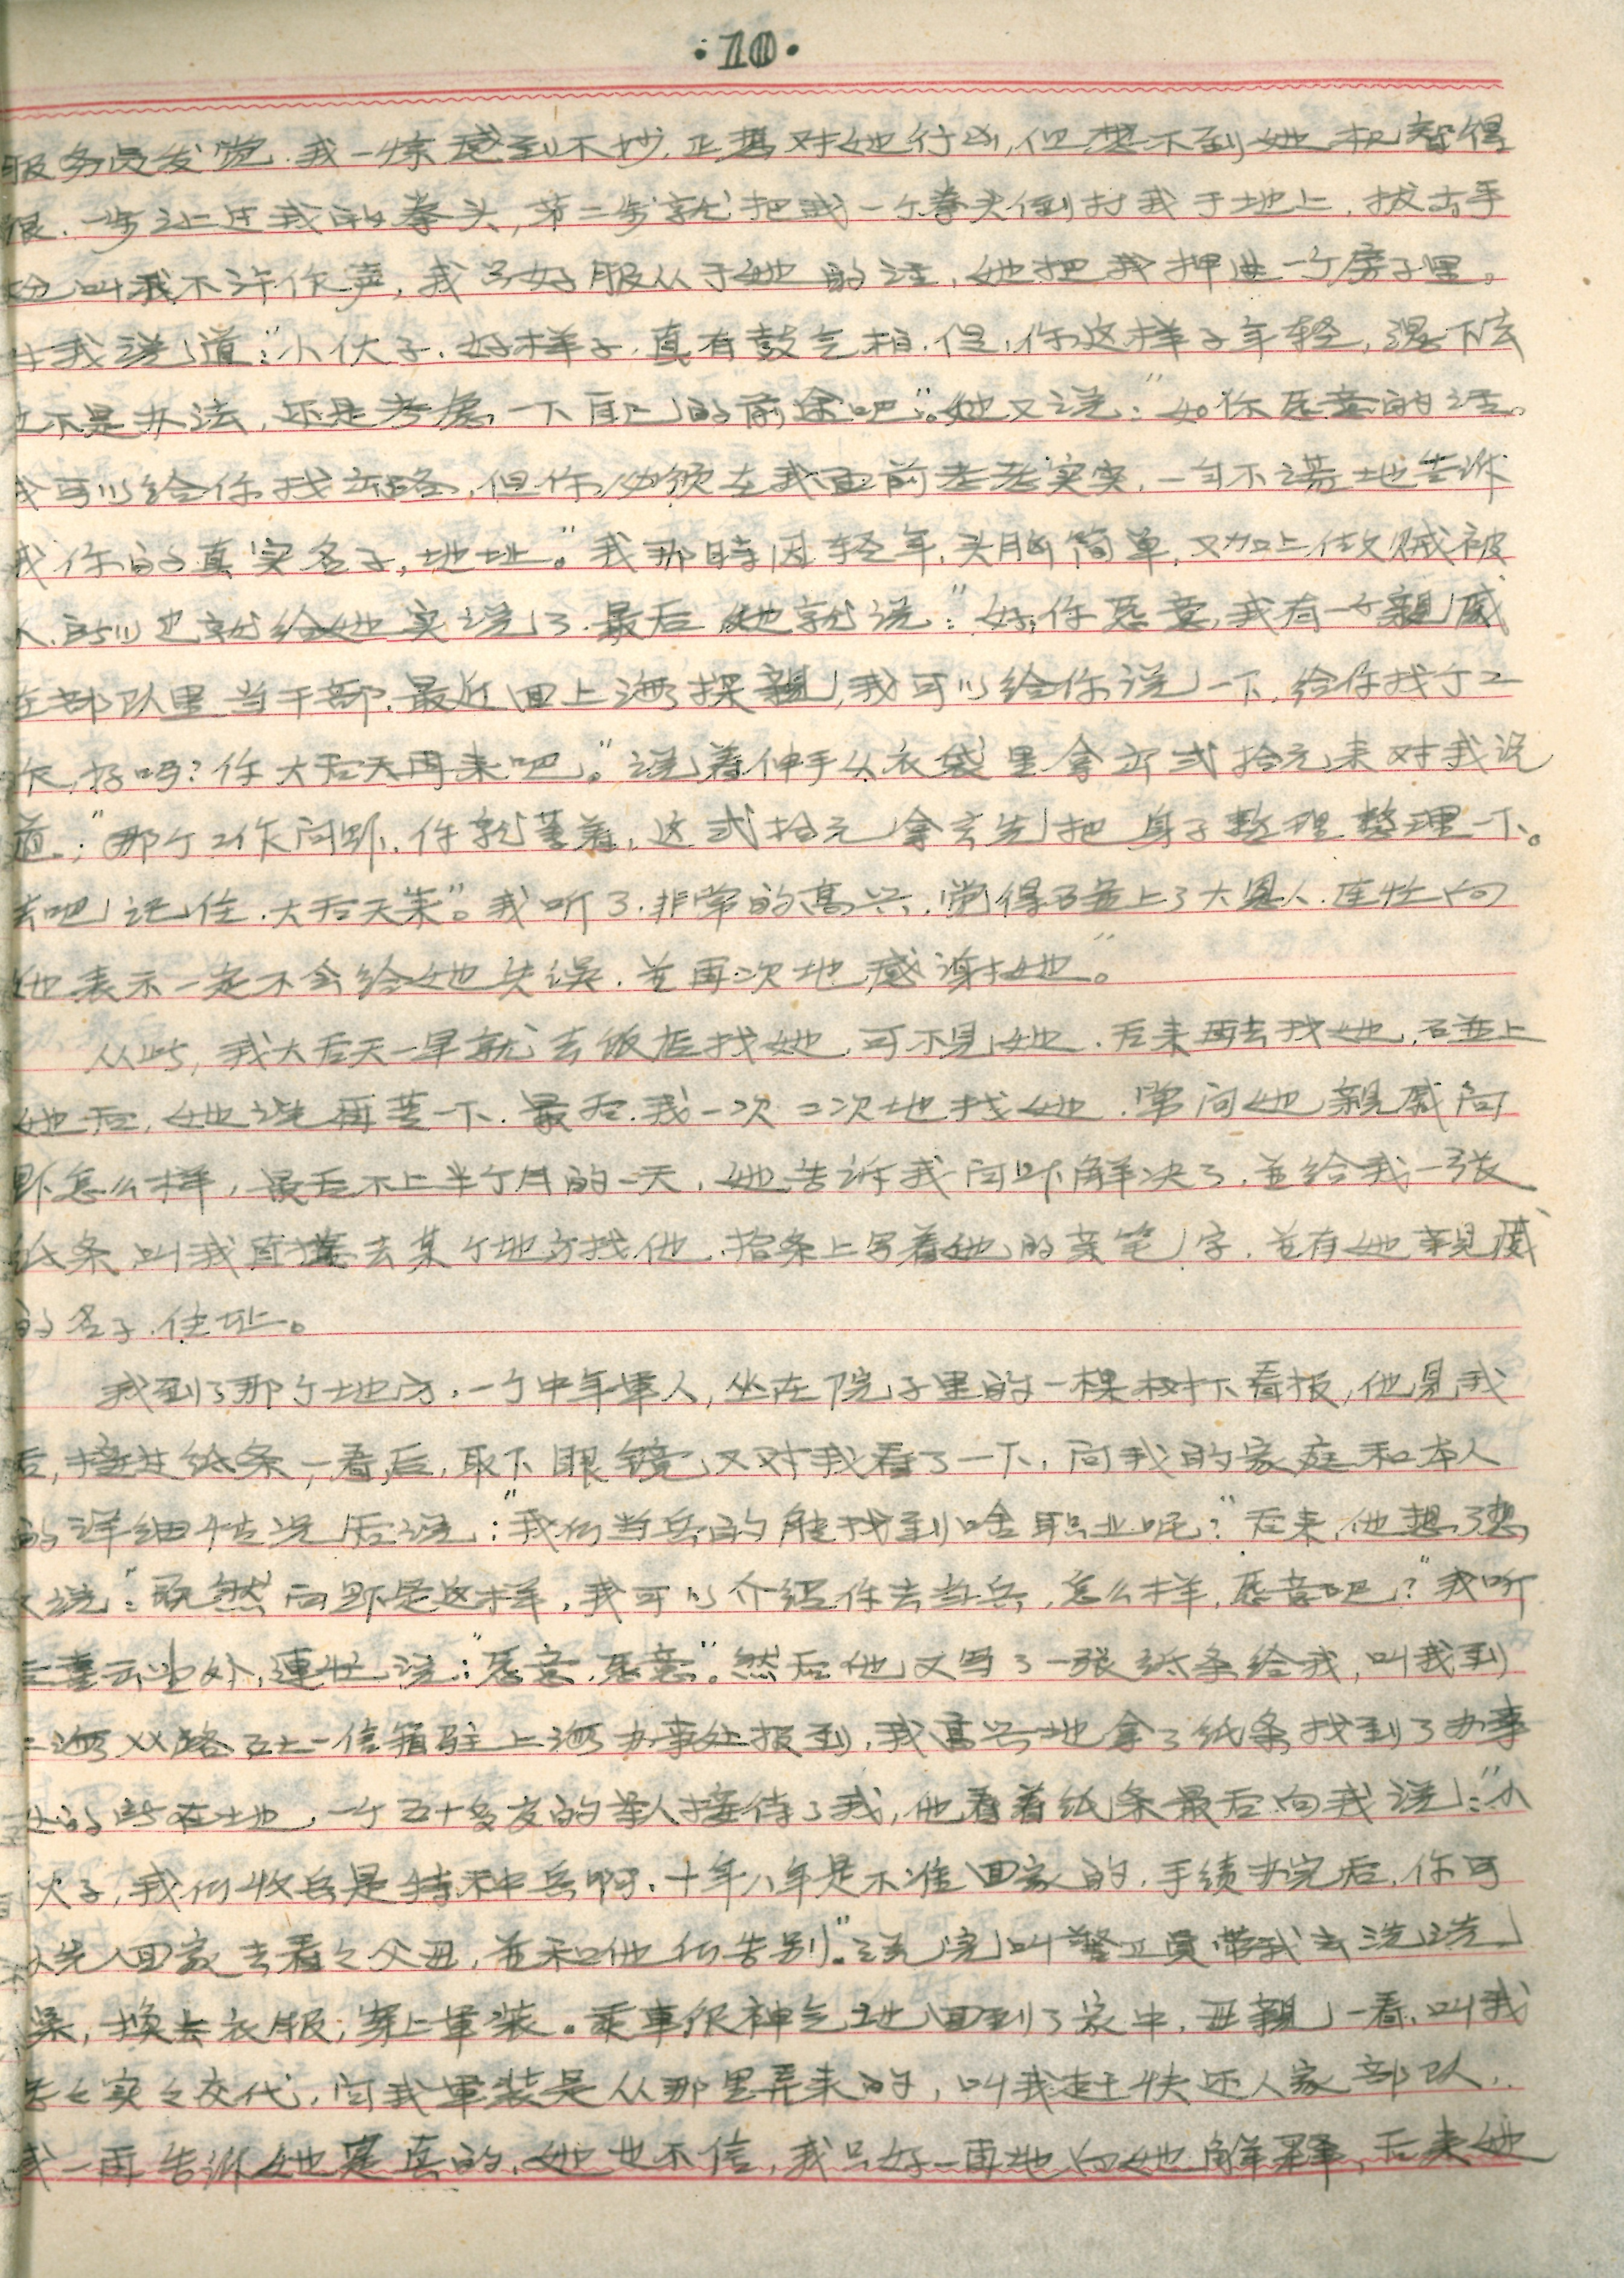 ·10·
服务员发觉.我一惊感到不妙.正想对她行凶,但想不到她机智得
很.一步让过我的拳头,第二步就把我一个拳头倒打我于地上.拔出手
枪叫我不许作声,我只好服从于她的话,她把我押进一个房子里。
对我说道:“小伙子.好样子.真有鼓气相.但,你这样子年轻,混下去
也不是办法,还是考虑,一下自己的前途吧”。她又说:“如你愿意的话。
我可以给你找出路,但你必须在我面前老老实实,一句不谎地告诉
我你的真实名子,地址。”我那時因轻年,头脑简单,又加上做贼被
人,所以也就给她实说了.最后她就说:“好,你愿意,我有一个親戚
在部队里当干部.最近回上海探親,我可以给你说一下,给你找个工
作,好吗?你大后天再来吧。”说着伸手从衣袋里拿出弍拾元来对我说
道:“那个工作问题.你就等着,这弍拾元拿去先把身子整理整理一下。
去吧记住.大后天来”。我听了.非常的高兴.觉得碰上了大恩人.连忙向
她表示一定不会给她失误.並再次地感谢她。”
从此,我大后天一早就去饭店找她,可不見她.后来再去找她,碰上
她后,她说再等一下.最后.我一次二次地找她.常问她親戚问
题怎么样,最后不上半个月的一天,她告诉我问题解决了.並给我一张
纸条叫我直接去某个地方找他.指条上写着她的亲笔字.並有她親戚
的名子.住址。
我到了那个地方.一个中年軍人,坐在院子里的一棵树下看报,他見我
后,接过纸条一看后,取下眼镜又对我看了一下,问我的家庭和本人
的详细情况后说:“我们当兵的能找到啥职业呢?”后来,他想了想
又说:“既然问题是这样,我可以介绍你去当兵,怎么样,愿意吧?”我听
后喜出望外,連忙说:“愿意.愿意”。然后他又写了一张纸条给我,叫我到
上海××路五十一信箱驻上海办事处报到,我高兴地拿了纸条找到了办事
处的所在地,一个五十多岁的軍人接待了我,他看着纸条最后向我说:“小
伙子,我们收兵是特种兵啊.十年八年是不准回家的.手续办完后,你可
以先回家去看之父母,並和他们告别”。说完叫警卫员带我去洗洗
澡,换去衣服,穿上軍装。乘車很神气地回到了家中.母親一看,叫我
老之实之交代,问我軍装是从那里弄来的,叫我赶快还人家部队.
我一再告诉她是真的,她也不信,我只好一再地向她解释,后来她